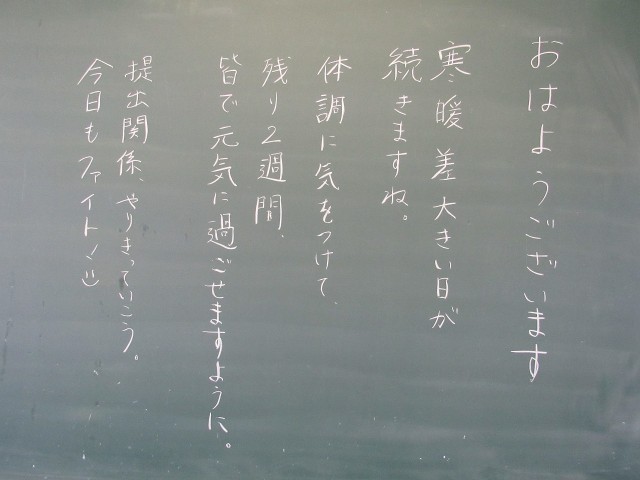 おはようございます
寒暖差大きい日が
続きますね。
体調に気をつけて、
残り2週間、
皆で元気に過ごせますように。
提出関係、やりきっていこう。
今日もファイト!